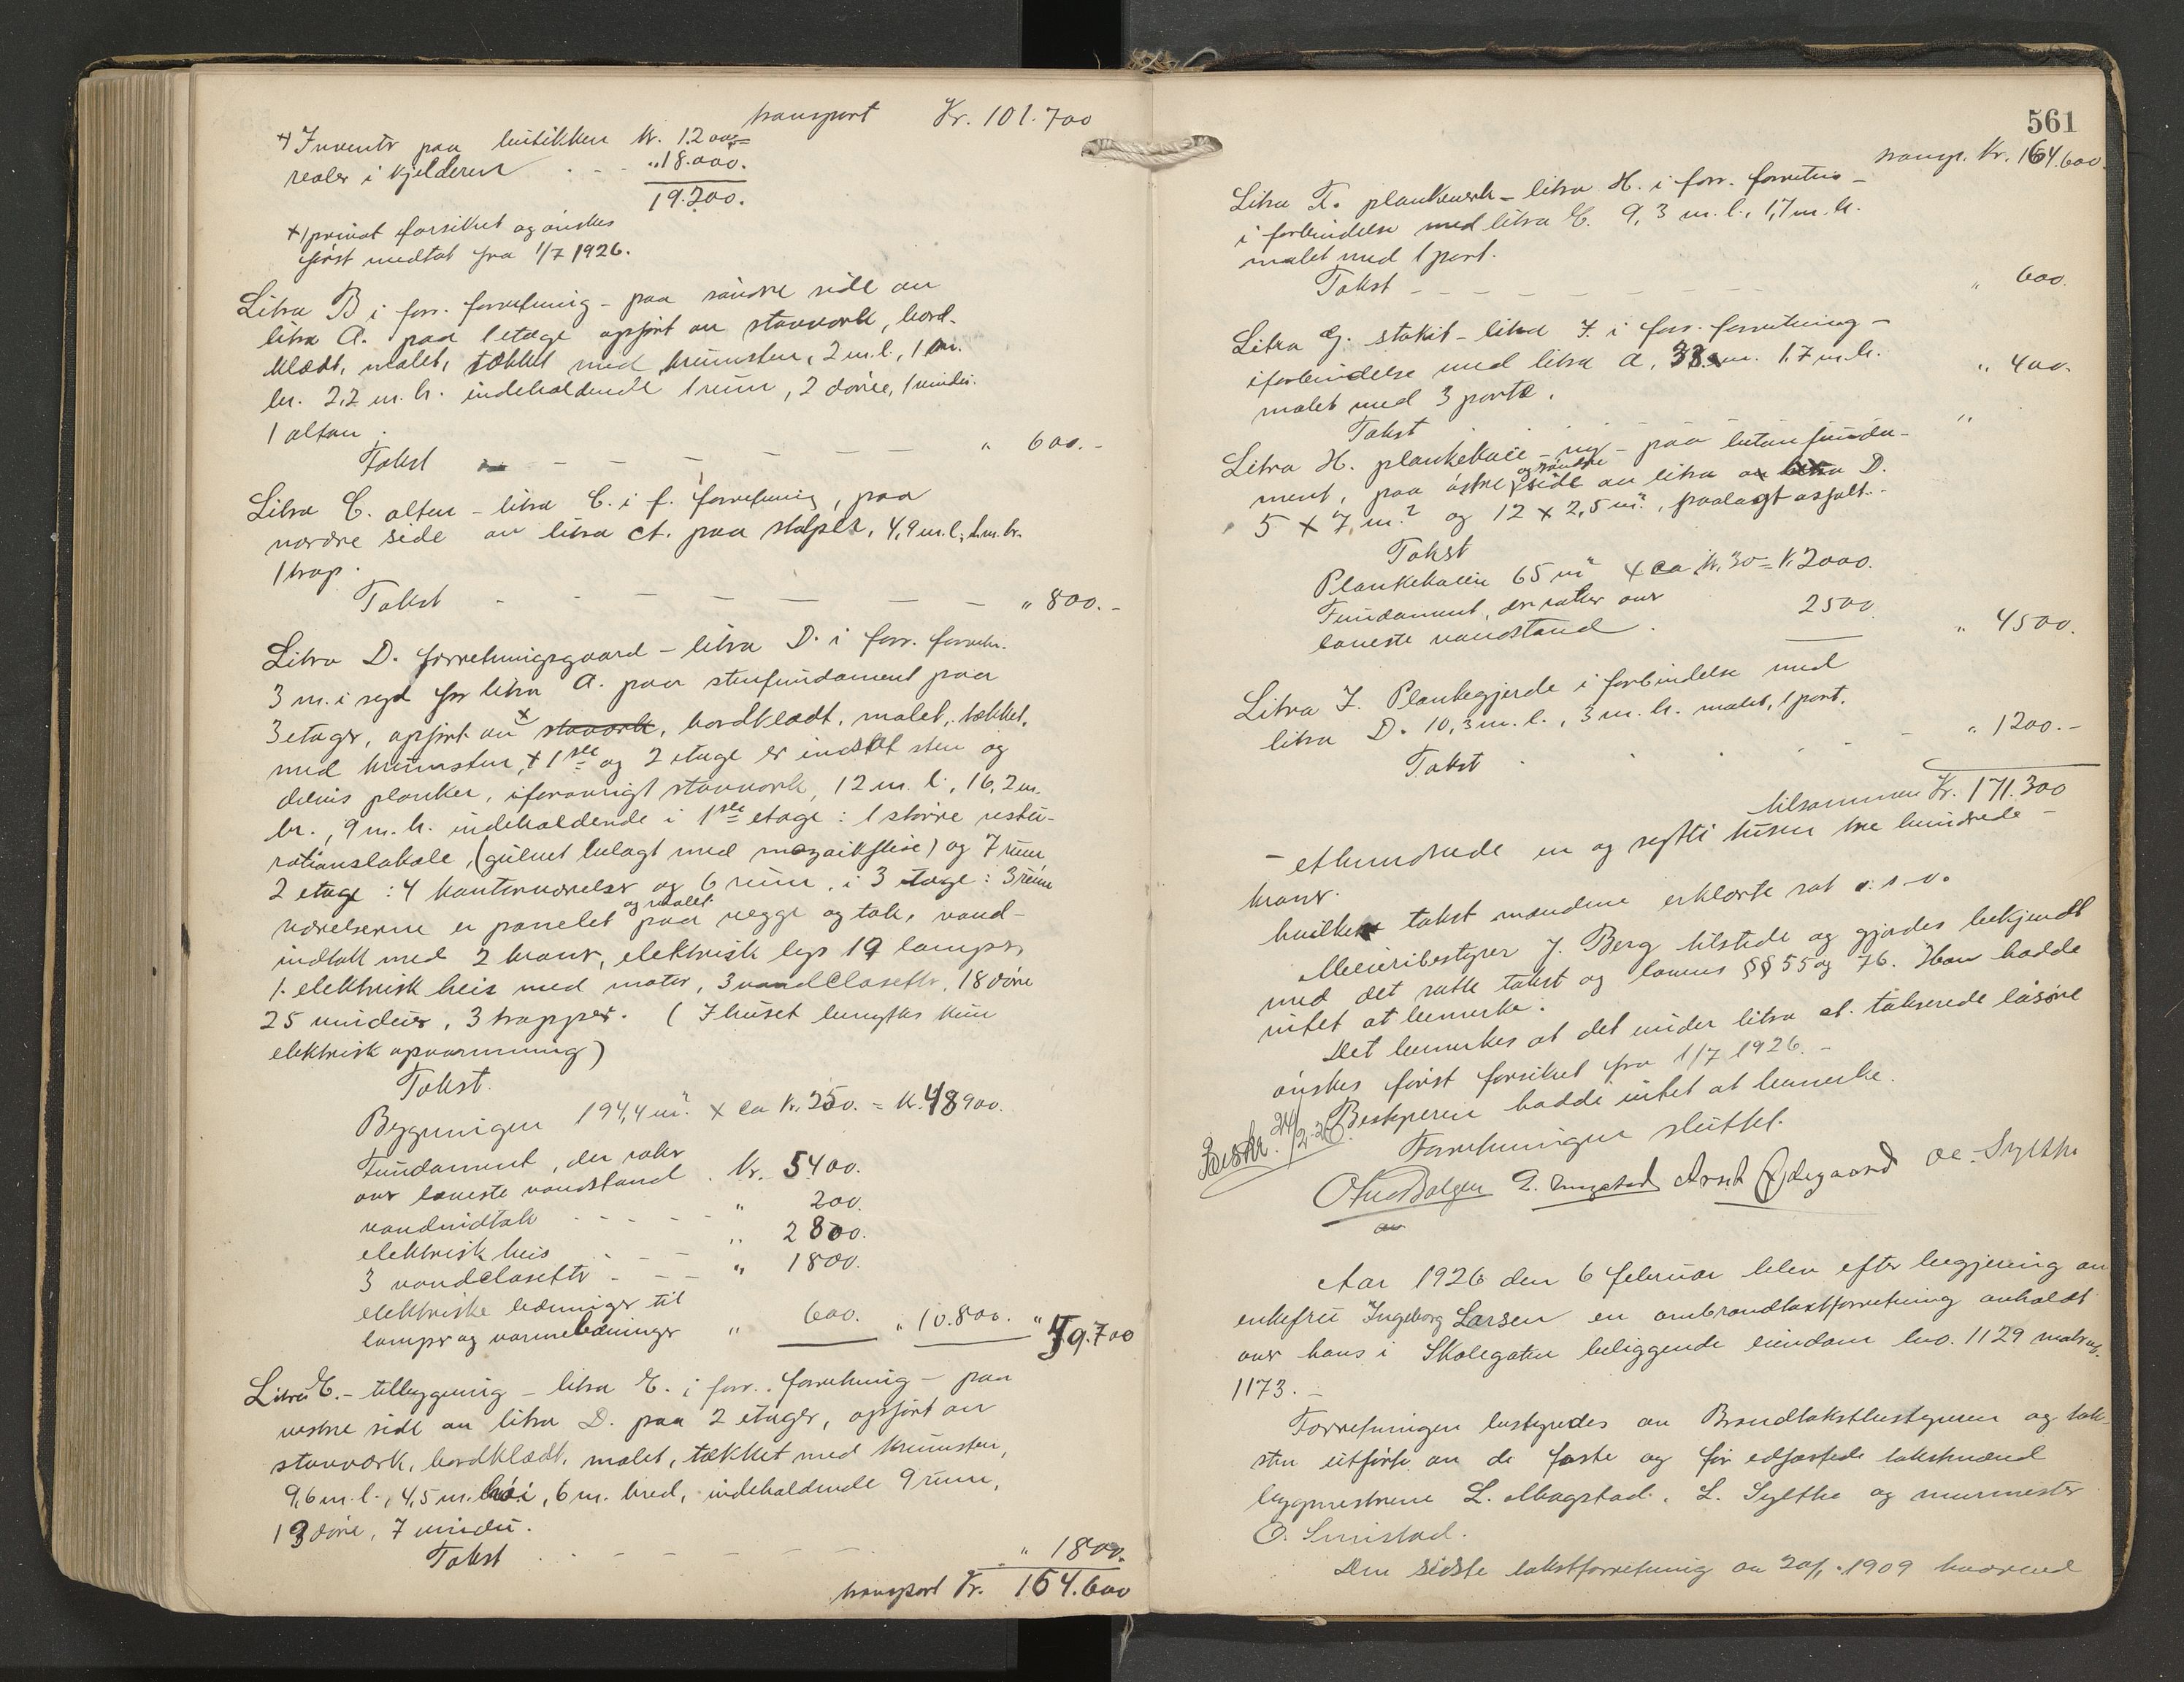 transport Kr. 101.700
+) Inventr paa butikken kr. 1.200.=
realer i kjelderen . . . „ 18.000.
19.200.
+) privat forsikret og ønskes
først medtat fra 1/7 1926.
Litra B i forr. forretning – paa søndre side av
litra A. paa 1 etage opført av stavverk, bord-
klædt, malet, tækket med krumsten, 2 m.l., 1 m.
br. 2,2 m. h. indeholdende 1 rum, 2 døre, 1 vindu.
1 altan.
Takst – – – – – – „ 600.–
Litra C. altan – litra C. i f. forretning, paa
nordre side av litra A. paa stolper, 4,9 m.l., 1 m. br.
1 trap.
Takst – – – – – – – „ 800.–
Litra D. forretningsgaard – litra D. i forr. forretn.
3 m. i syd for litra A. paa stenfundament paa
3 etager, opført av x stavverk, bordklædt, malet, tækket
med krumsten, + 1ste og 2 etage er indsat sten og
delvis planker, iforøvrigt stavverk, 12 m. l., 16,2 m.
br., 9 m. h. indeholdende i 1ste etage: 1 større restu-
rationslokale, (gulvet belagt med mozaikflise) og 7 rum,
2 etage: 4 kontorværelser og 6 rum, i 3 etage: 3 rum
værelserne er panelet og malet paa vegge og tak, vand-
indtak med 2 kraner, elektrisk lys 19 lamper,
1. elektrisk heis med motor, 3 vandclosetter, 18 døre
25 vinduer, 3 trapper. ( I huset benyttes kun
elektrisk opvarmning)
Takst.
Bygningen 194,4 m². x ca kr. 250. = kr. 48900.
Fundament, der rakr
over laveste vandstand . Kr. 5400.
vandindtak - - - - - „ 200.
elektrisk heis - - - „ 2800.
3 vandclosetter - - - „ 1800.
elektriske ledninger til
lamper og varmeledninger „ 600. „ 10.800. „ 59.700
Litra E. – tilbygning – litra E. i forr. forretning – paa
vestre side av litra D. paa 2 etager, opført av
stavværk, bordklædt, malet, tækket med krumsten,
9,6 m. l., 4,5 m. høi, 6 m. bred, indeholdende 9 rum,
13 døre, 7 vindu.
Takst . . - - - - - „ 1800.
transport Kr. 164.600
561
transp. Kr. 164.600.
Litra F. plankeverk – litra H. i forr. forretn. –
i forbindelse med litra E. 9,3 m. l., 1,7 m. h.
malet med 1 port.
Takst – – – – – – – – „ 600.
Litra G. stakit – litra I. i forr. forretning –
iforbindelse med litra A, 38 m. 1,7 m. h.
malet med 3 porte. „ 400.
Takst „
Litra H. plankekaie – ny – paa betonfunda-
ment, paa østre og søndre side av litra D.
5 x 7 m.² og 12 x 2,5 m², paalagt asfalt.
Takst
Plankekaien 65 m² x ca kr. 30 = kr. 2000.
Fundament, der rakker over
laveste vandstand . 2500 „ 4500.
Litra I. Plankegjerde i forbindelse med
litra D. 10,3 m. l., 3 m. h. malet, 1 port.
Takst . . . . - - „ 1200.–
tilsammen Kr. 171.300
– ethundrede en og sytti tusen tre hundrede –
kroner.
hvilken takst mændene erklærte sat o. s. v.
Meieribestyrer J. Berg tilstede og gjordes bekjendt
med det satte takst og lovens §§ 55 og 76. Han hadde
intet at bemerke.
Det bemerkes at det under litra A. takserede løsøre
ønskes først forsikret fra 1/7 1926. –
Beskr. 24/2-26. Bestyreren hadde intet at bemerke.
Forretningen sluttet.
Arnt Ødegaard Ole Sylthe
Aar 1926 den 6 februar blev efter begjering av
enkefru Ingeborg Larsen en ombrandtaxtforretning avholdt
over hans i Skolegaten beliggende eiendom bno. 1129 matr.no.
1173. –
Forretningen bestyredes av Brandtakstbestyreren og tak-
sten utførte av de faste og før edfæstede takstmænd
bygmestrene L. Magstad, L. Sylthe og murmester
O. Smistad.
Den sidste takstforretning av 20/1. 1909 hvorved